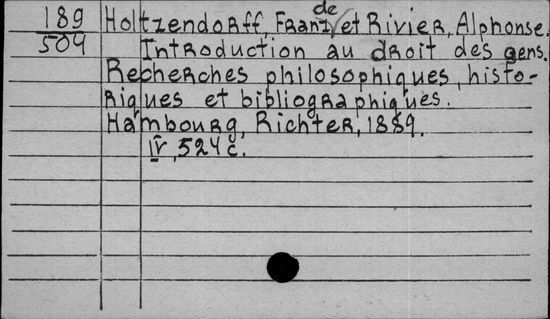 189 Holtzendorff, Franz de et Rivier, Alphonse.
504 Introduction au droit des gens.
Recherches philosophiques, histo-
riques et bibliographiques.
Hambourg, Richter, 1889.
IV, 524 c.